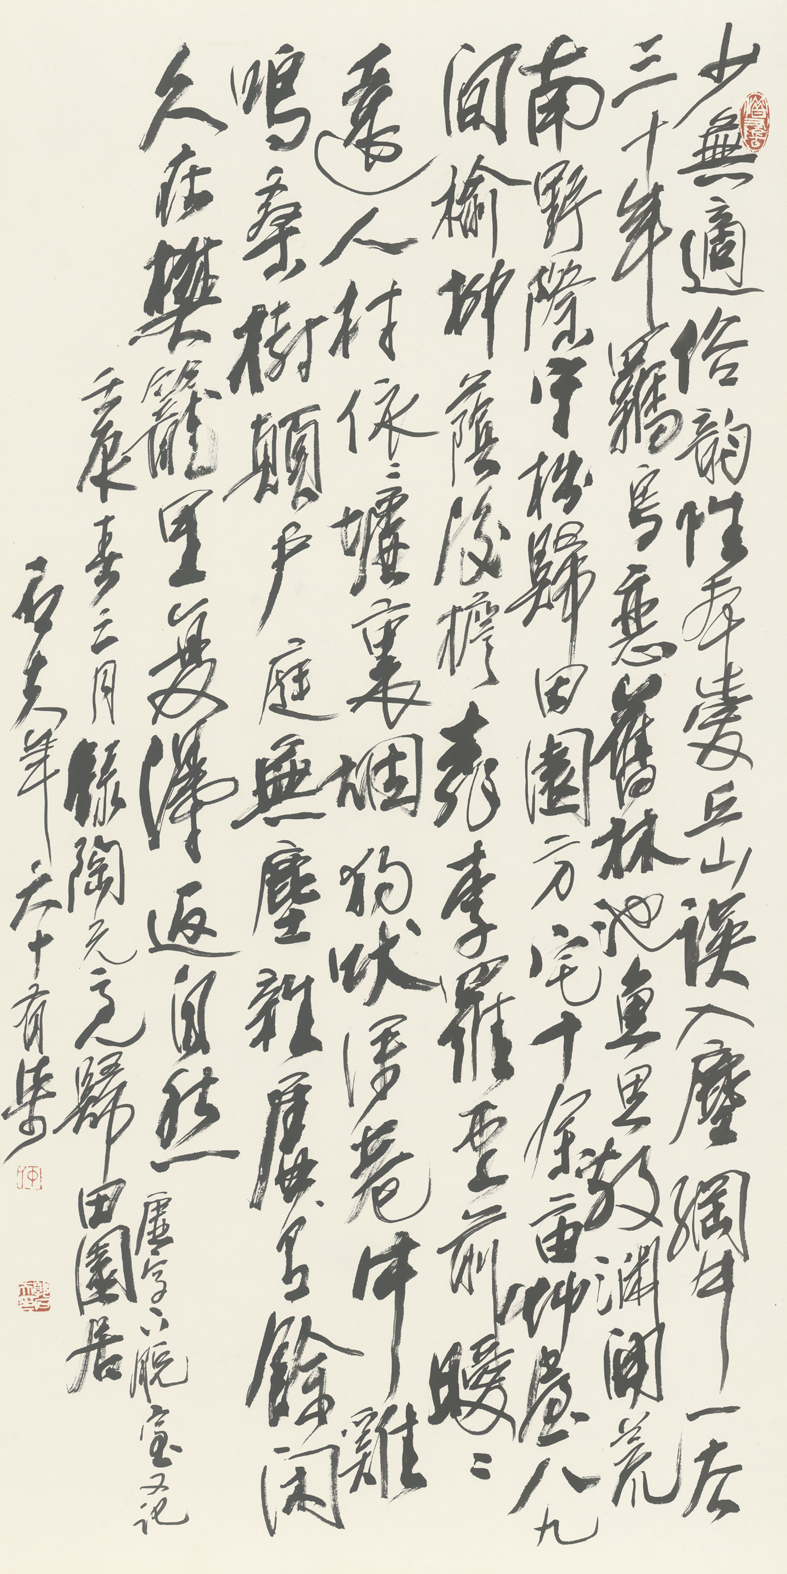 少無適俗韻性本愛丘山誤入塵網中一去
三十年羈鳥戀舊林池魚思故淵開荒
南野際守拙歸田園方宅十余亩艸屋八九
間榆柳蔭後檐桃李羅堂前曖〻
遠人村依〻墟裏烟狗吠深巷中雞
鳴桑樹顛戶庭無塵雜虛有餘閑
久在樊籠里復得返自然
虛字下脫室又記
壬辰春三月錄陶元亮歸田園居
石夫年六十有